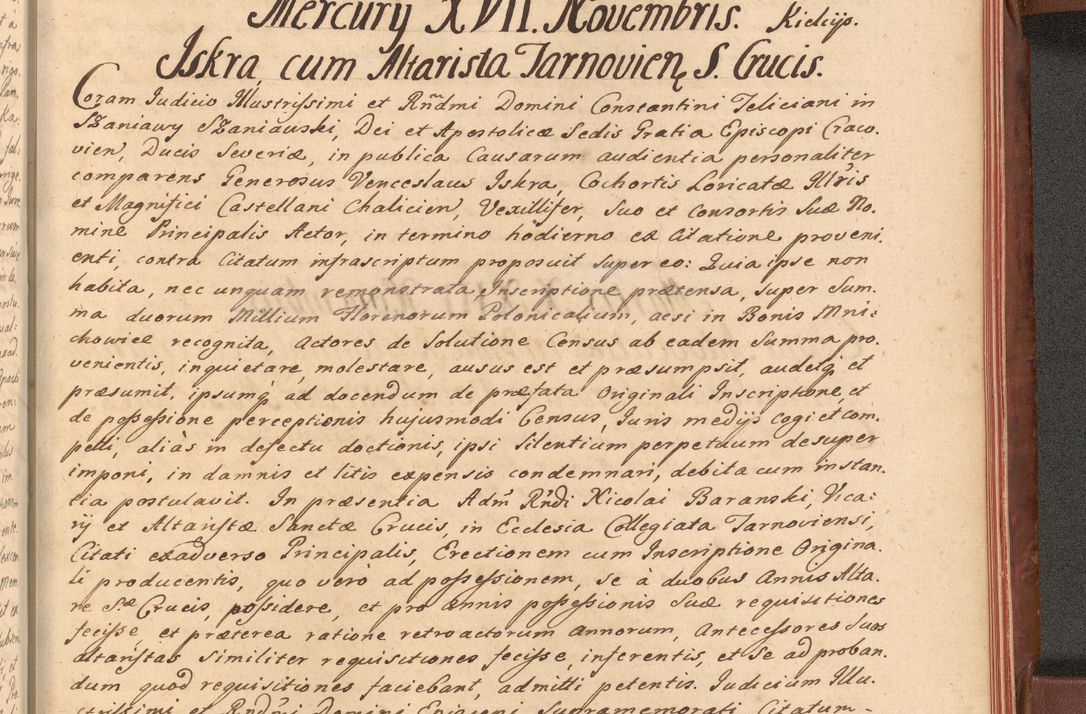 Mercurÿ XVII. Novembris. Kielcijs.
Iskra, cum Altarista Tarnovien, S. Crucis.
Coram Iudicio Illustrissimi et Rñdmi Domini Constantini Feliciani in
Szaniawy Szaniawski, Dei et Apostolicæ Sedis Gratia Episcopi Craco.
vien, Ducis Severiæ, in publica Causarum audientia personaliter
comparens Generosus Venceslaus Iskra, Cohortis Loricatæ Illris
et Magnifici Castellani Chalicien, Vexillifer, Suo et Consortis Suæ No.
mine Principalis Actor, in termino hodierno ex Citatione proveni.
enti, contra Citatum infrascriptum proposuit super eo: Quia ipse non
habita, nec unquam remonstrata Inscriptione prætensa, super Sum.
ma duorum Millium Florenorum Polonicalium, acsi in Bonis Mni:
chowice recognita, Actores de Solutione Census ab eadem Summa pro.
venientis, inquietare, molestare, ausus est et præsumpsit, audetq et
præsumit, ipsumq ad docendum de præfata Originali Inscriptione, et
de possessione perceptionis hujusmodi Census, Iuris medijs cogi et com.
pelli, aliàs in defectu doctionis, ipsi Silentium perpetuum desuper
imponi, in damnis et litis expensis condemnari, debita cum instan.
tia postulavit. In præsentia Adm Rñdi Nicolai Baranski, Vica:
rij et Altaristæ Sanctæ Crucis, in Ecclesia Collegiata Tarnoviensi,
Citati exadverso Principalis, Erectionem cum Inscriptione Origina.
li producentis, quo verò ad possessionem, se à duobus Annis Alta.
re Sæ Crucis, possidere, et pro annis possessionis Suæ requisitiones
fecisse, et præterea ratione retroactorum Annorum, Antecessores Suos
altaristas similiter requisitiones fecisse, inferentis, et Se ad proban.
dum quod requisitiones faciebant, admitti petentis. Iudicium Illu.
strissimi et Rñdmi Domini Episcopi Supramemorati Citatum-